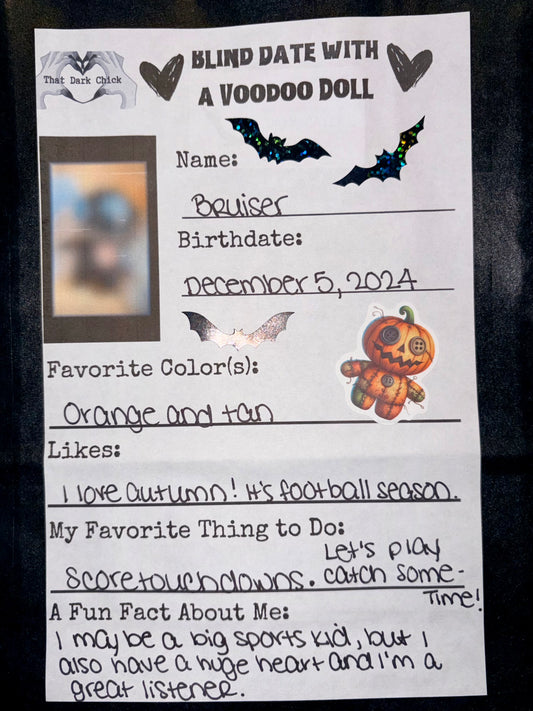 That Dark Chick
BLIND DATE WITH
A VOODOO DOLL
Name:
Bruiser
Birthdate:
December 5, 2024
Favorite Color(s):
Orange and tan
Likes:
I love autumn! It's football season.
My Favorite Thing to Do:
Score touchdowns. Let's play
catch some-
Time!
A Fun Fact About Me:
I may be a big sports kid, but I
also have a huge heart and I'm a
great listener.